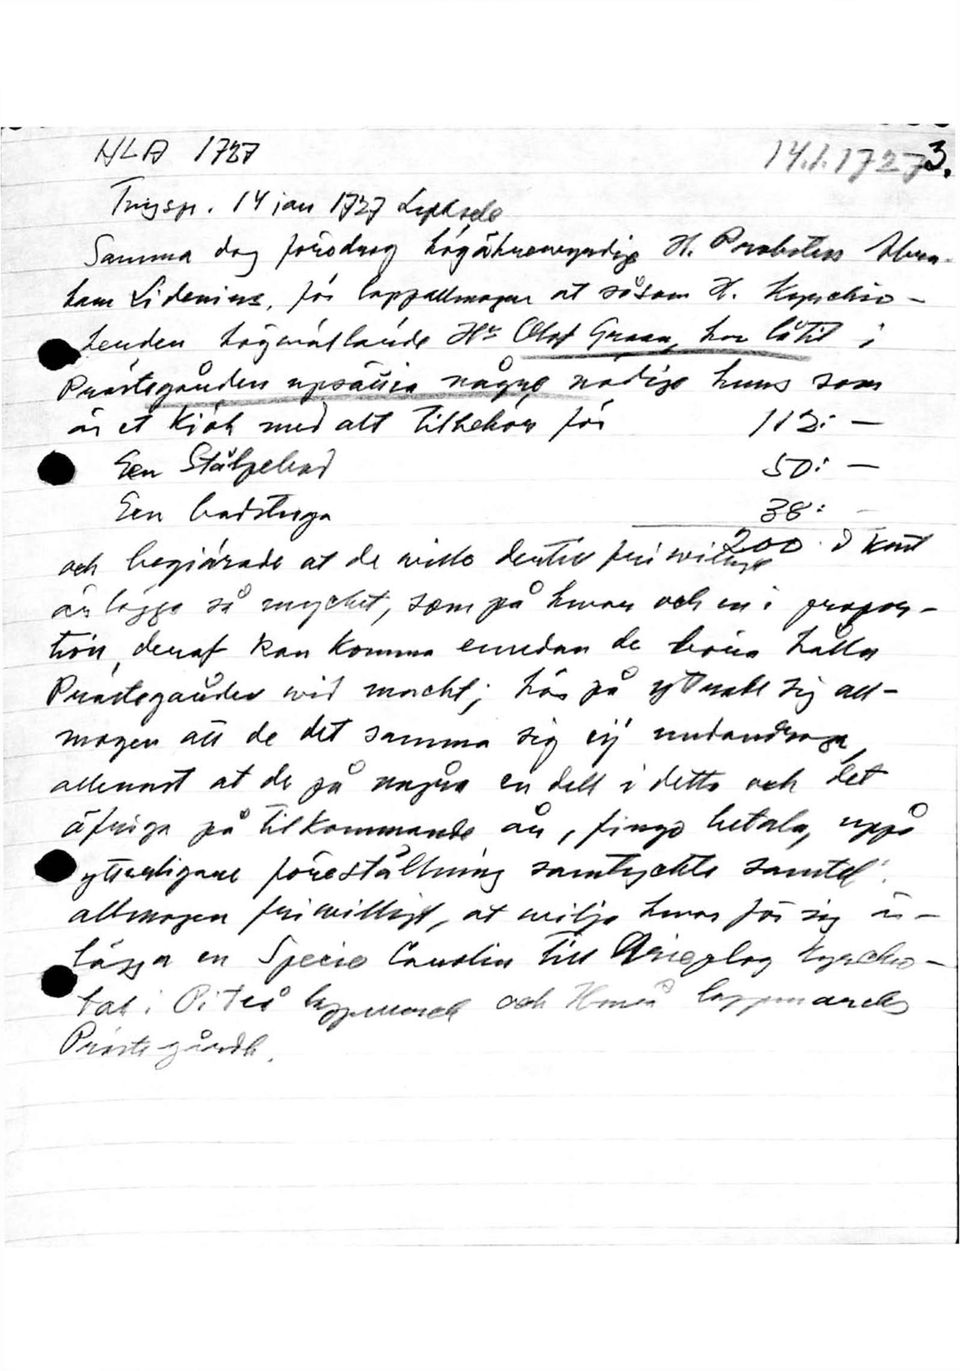 HLA 1727 14.1.1727 3.
Tingspr. 14 jan 1727 Lycksele
Samma dag föredrog högährewyrdige H. Probsten Abra-
ham Lidenius, för lappallmogen at såsom H. Kyrckio-
herden högwällärde Hr Olof Graan, har låtit i
Prästegården upsättia någre nödige huus som
är et Kiök med alt tilbehör för 112: —
Een Stålpebod 50: —
Een badstuga 38: -
200 d kmt
och begiärade at de wille dertill friwilligt
ärlägga så mycket, som på hwar och en i propor-
tion, deraf kan komma emedan de böra hålla
Prästegården wid macht; här på yttrade sig all-
mogen att de det samma sig eij undandraga,
allenast at de på några en dell i detto och det
öfriga på tilkommande år, fingo betala, uppå
ytterligare föreställning samtyckte samtel:
allmogen friwilligt, at wilja hwar för sig är-
lägga en Specie Carolin till Arieplog Kyrckio-
tak i Piteå lappmarck och Umeå lappmarcks
Prästegårdh.